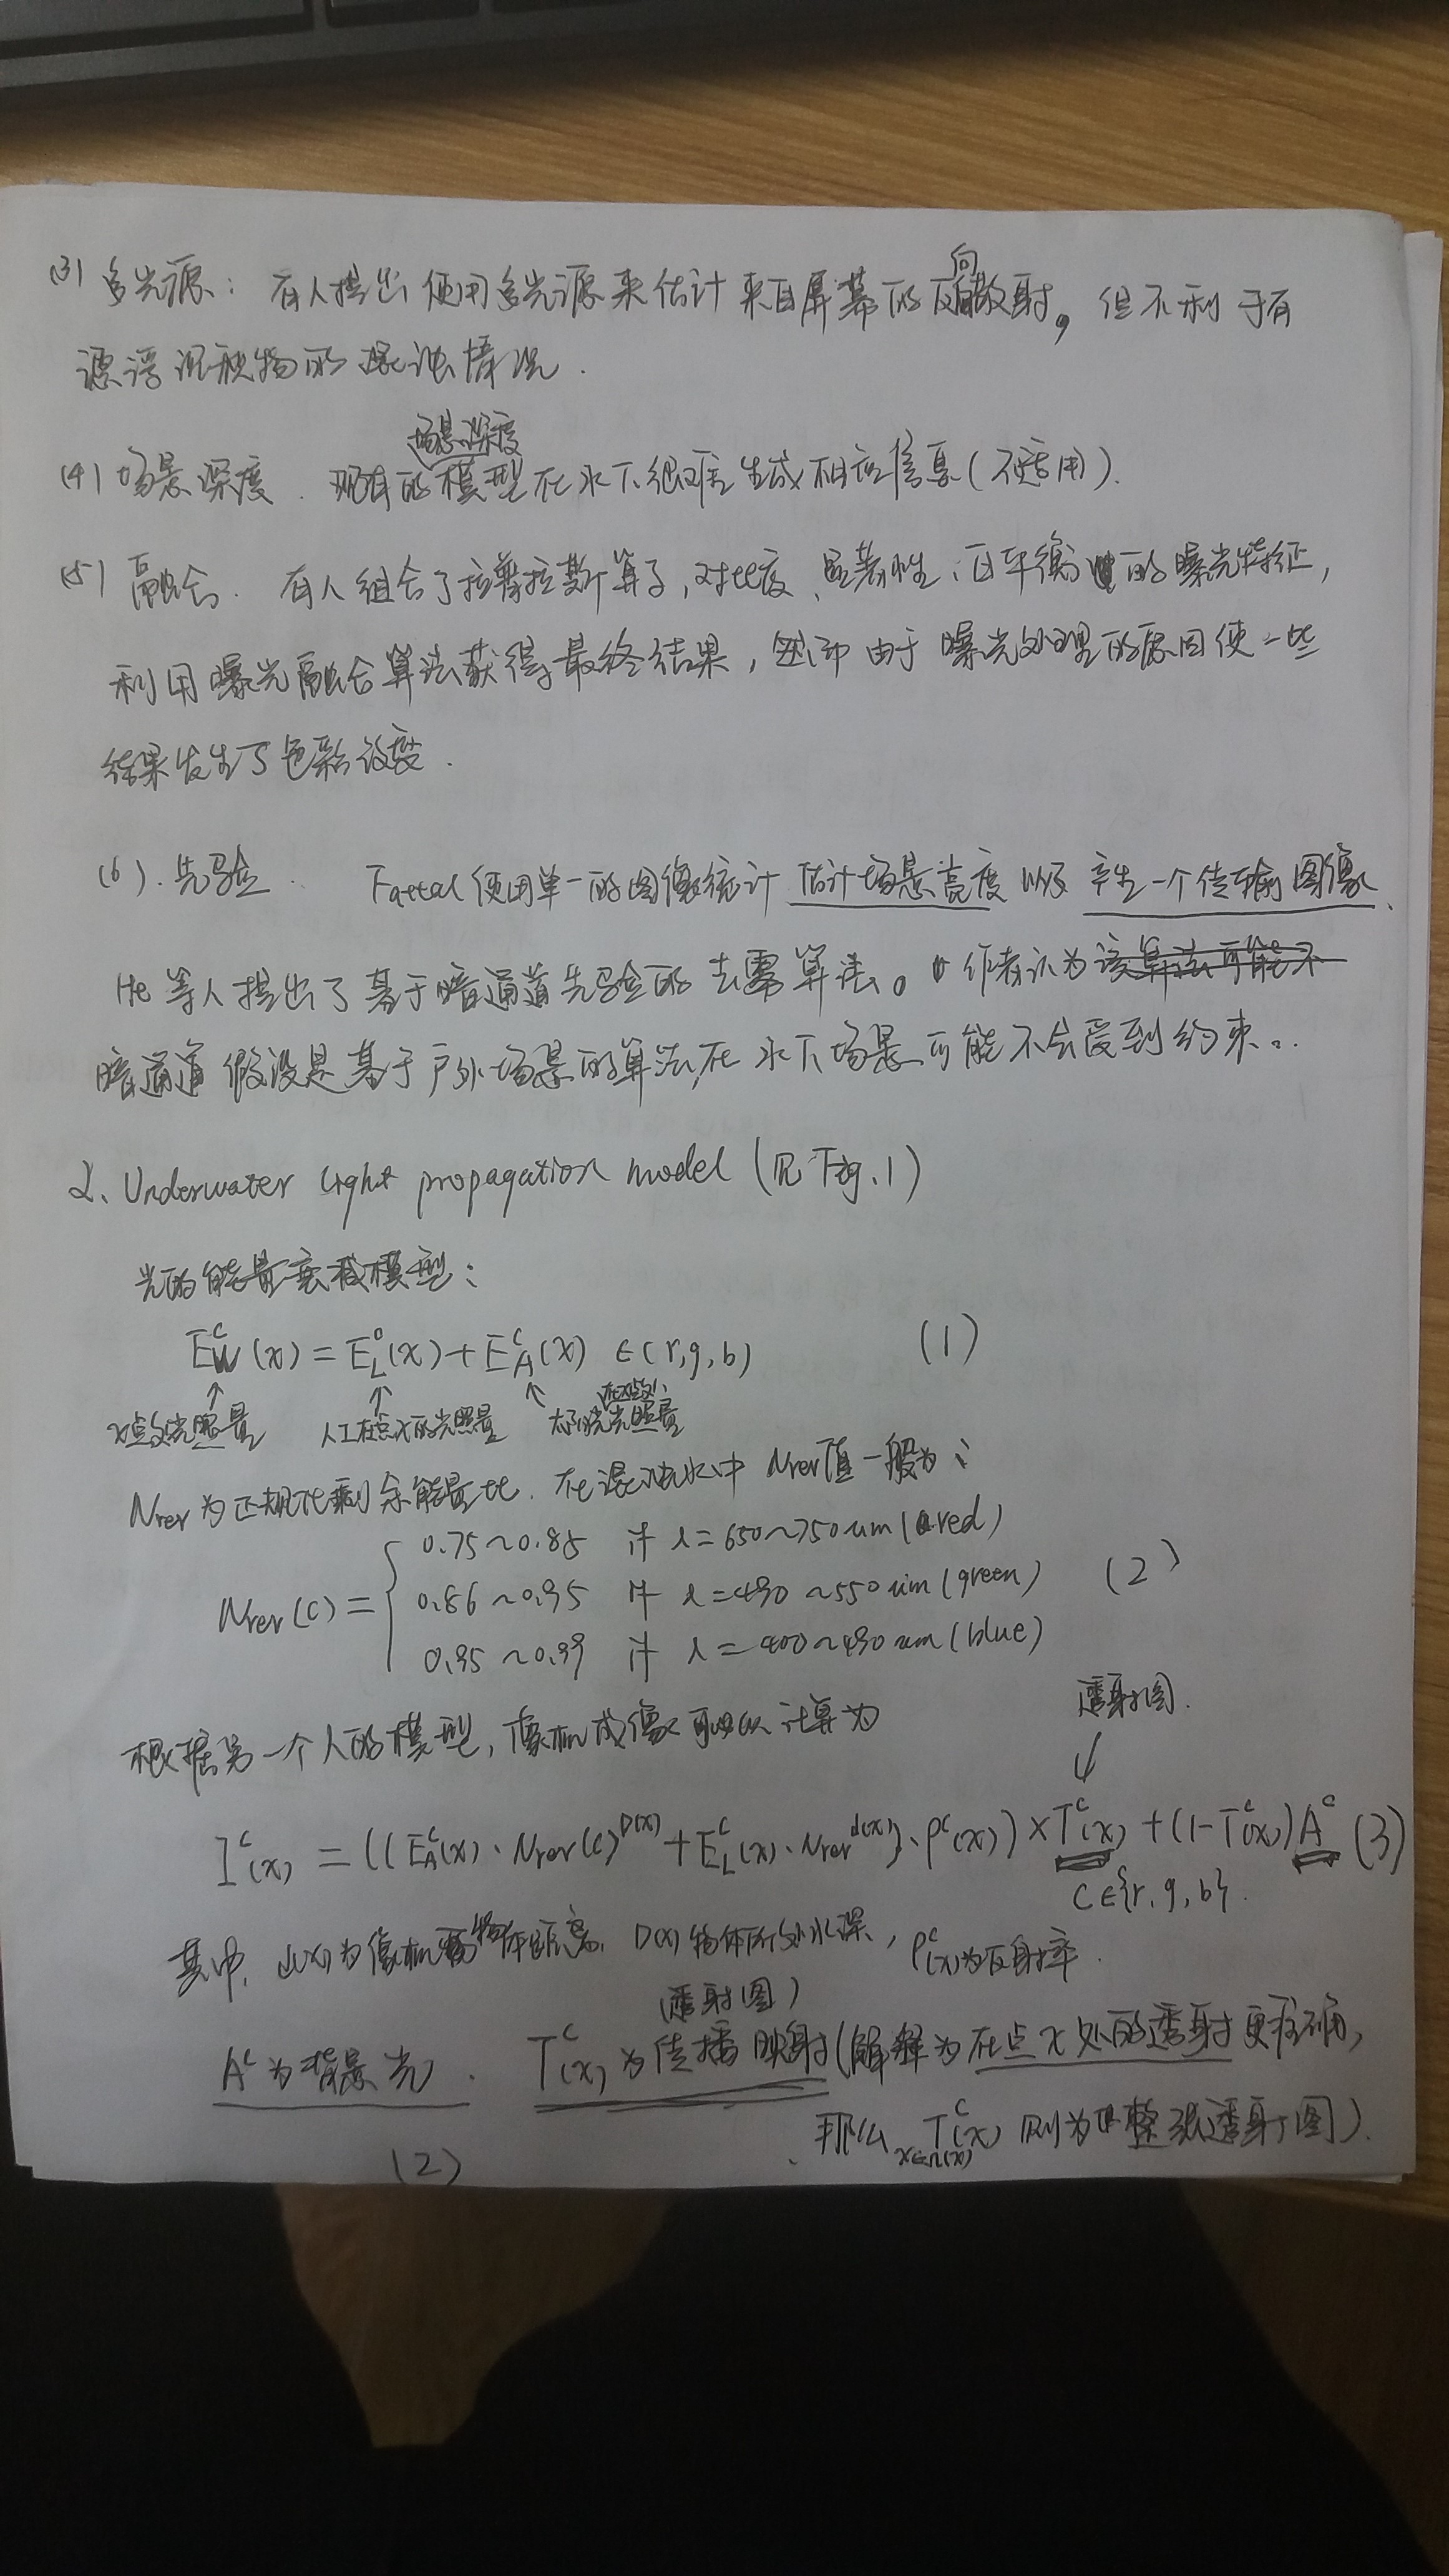 (3) 多光源：有人提出使用多光源来估计来自屏幕的反向散射，但不利于有
漂浮沉积物的混浊情况．
(4) 场景深度．现有的场景深度模型在水下很难生成相应信息(不适用)．
(5) 融合．有人组合了拉普拉斯算子,对比度、显著性、白平衡的曝光特征，
利用曝光融合算法获得最终结果，然而由于曝光处理的原因使一些
结果发生了色彩改变．
(6)．先验． Fattal使用单一的图像统计 估计场景亮度 以及 产生一个传输图像、
He等人提出了基于暗通道先验的去雾算法。作者认为该算法可能不
暗通道假设是基于户外场景的算法,在水下场景可能不会受到约束．
2、Underwater light propagation model (见Fig.1)
光的能量衰减模型：
E_W^c(x) = E_L^c(x) + E_A^c(x) ∈(r,g,b) (1)
x点的光照量 人工在点x的光照量 太阳光在x点的光照量
Nrer为正规化剩余能量比．在混浊水中 Nrer值一般为：
Nrer(c) = { 0.75~0.85 if λ=650~750um(red)
0.86~0.95 if λ=490~550um(green) (2)
0.95~0.99 if λ=400~490um(blue)
根据另一个人的模型，像机成像可以计算为
透射图．
I^c(x) = ((E_A^c(x)·Nrer(c)^D(x) + E_L^c(x)·Nrer^d(x))·ρ^c(x)) × T^c(x) + (1-T^c(x))A^c (3)
C∈{r,g,b}．
其中，d(x)为像机离物体距离、D(x)物体所处水深，ρ^c(x)为反射率．
A^c为背景光． T^c(x)为传播映射(透射图)(解释为在点x处的透射更准确，
那么 T^c(x) x∈Ω(x) 则为整张透射图)．
(2)